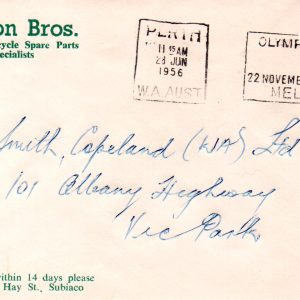 on Bros.
cycle Spare Parts
pecialists
PERTH
11 15AM
28 JUN
1956
W.A. AUST
OLYMP
22 NOVEMBE
MEL
Smith, Copeland (WA) Ltd
101 Albany Highway
Vic Park
within 14 days please
Hay St., Subiaco